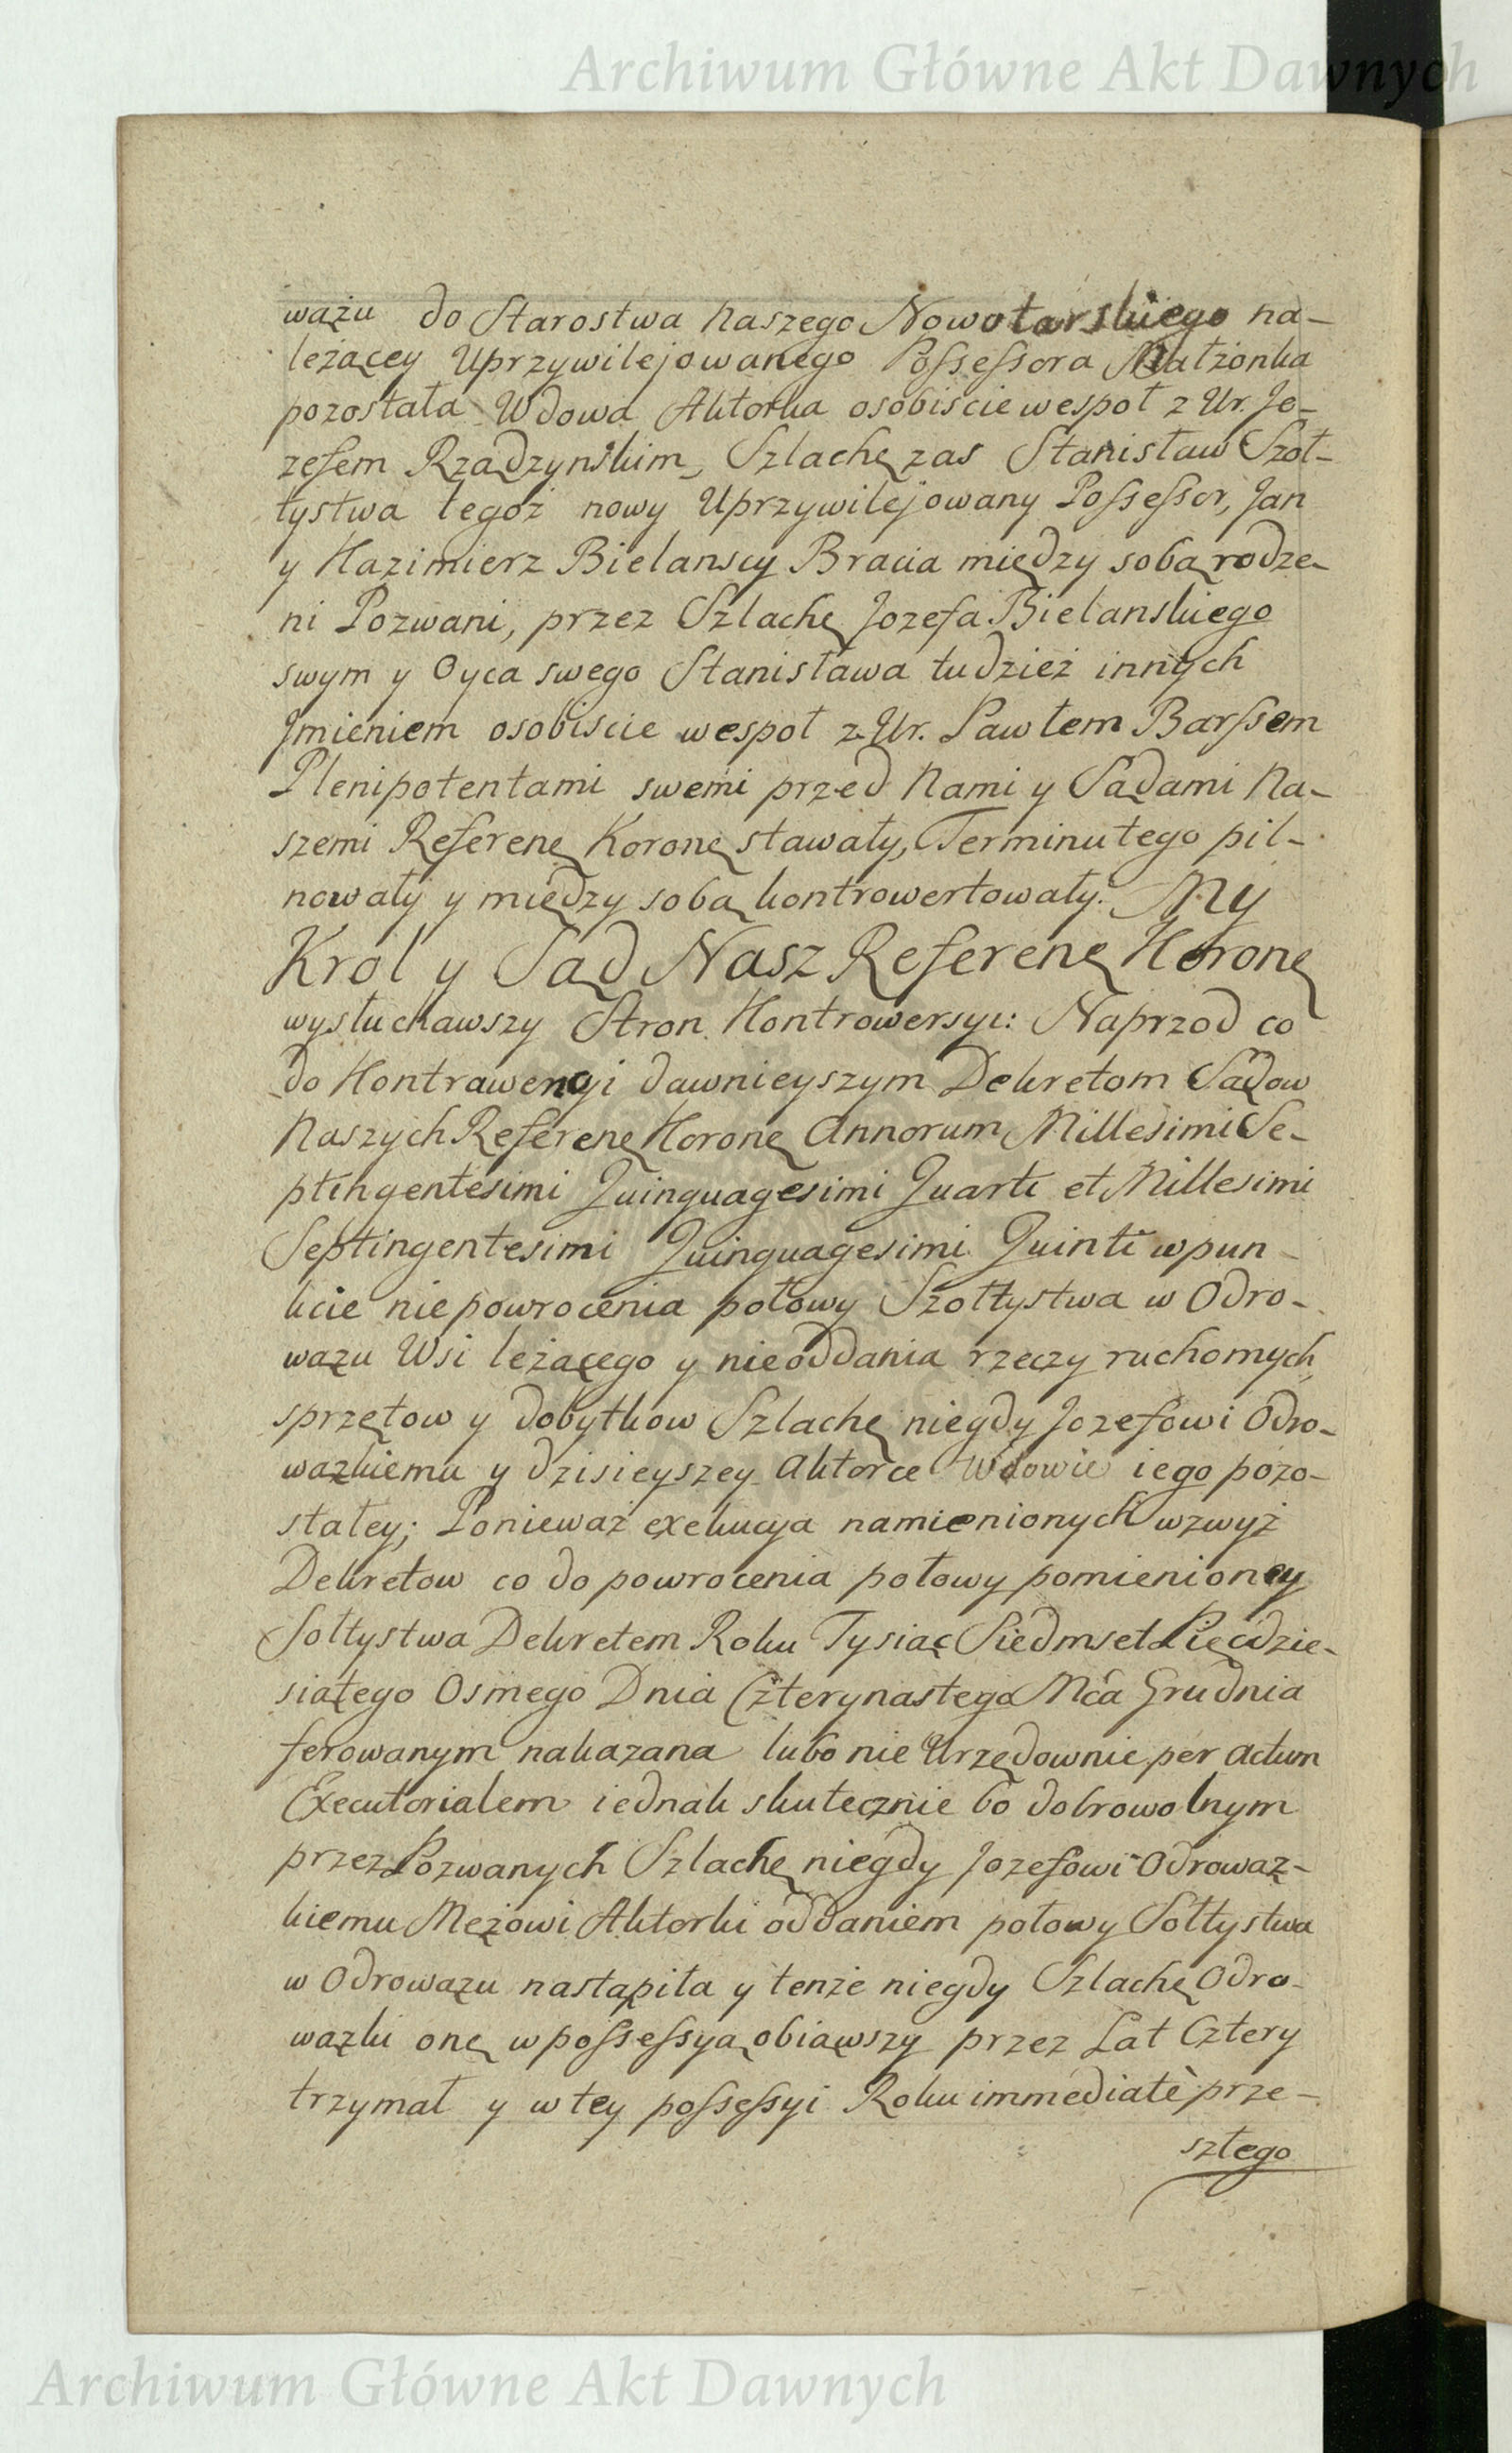 Archiwum Główne Akt Dawnych
wązu do Starostwa Naszego Nowotarskiego na-
leżącey Uprzywilejowanego Possessora Małżonka
pozostała Wdowa Aktorka osobiscie wespoł z Ur. Jo-
zefem Rządzynskim, Szlachę zas Stanisław Szoł-
tystwa tegoż nowy Uprzywilejowany Possessor, Jan
y Kazimierz Bielanscy Bracia między sobą rodze-
ni Pozwani, przez Szlachę Jozefa Bielanskiego
swym y Oyca swego Stanisława tudzież innych
Jmieniem osobiscie wespoł z Ur. Pawłem Barssem
Plenipotentami swemi przed Nami y Sądami Na-
szemi Referenę Koronę stawały, Terminu tego pil-
nowały y między sobą kontrowertowały. My
Krol y Sąd Nasz Referenę Koronę
wysłuchawszy Stron Kontrowersyi: Naprzod co
do Kontrawencyi dawnieyszym Dekretom Sądow
Naszych Referenę Koronę Annorum Millesimi Se-
ptingentesimi Quinquagesimi Quarti et Millesimi
Septingentesimi Quinquagesimi Quinti w pun-
kcie niepowrocenia połowy Szołtystwa w Odro-
wązu Wsi leżącego y nieoddania rzeczy ruchomych,
sprzętow y dobytkow Szlachę niegdy Jozefowi Odro-
wązkiemu y dzisieyszey Aktorce Wdowie iego pozo-
stałey; Ponieważ exekucya namienionych wzwyż
Dekretow co do powrocenia połowy pomienioney
Sołtystwa Dekretem Roku Tysiąc Siedmset Pięcdzie-
siątego Osmego Dnia Czterynastego Mca Grudnia
ferowanym nakazana lubo nie Urzędownie per actum
Executorialem iednak skutecznie bo dobrowolnym
przez Pozwanych Szlachę niegdy Jozefowi Odrowąz-
kiemu Mężowi Aktorki oddaniem połowy Sołtystwa
w Odrowązu nastąpiła y tenże niegdy Szlachę Odro-
wązki onę w possessyą obiąwszy przez Lat Cztery
trzymał y w tey possessyi Roku immediatè prze-
szłego
Archiwum Główne Akt Dawnych